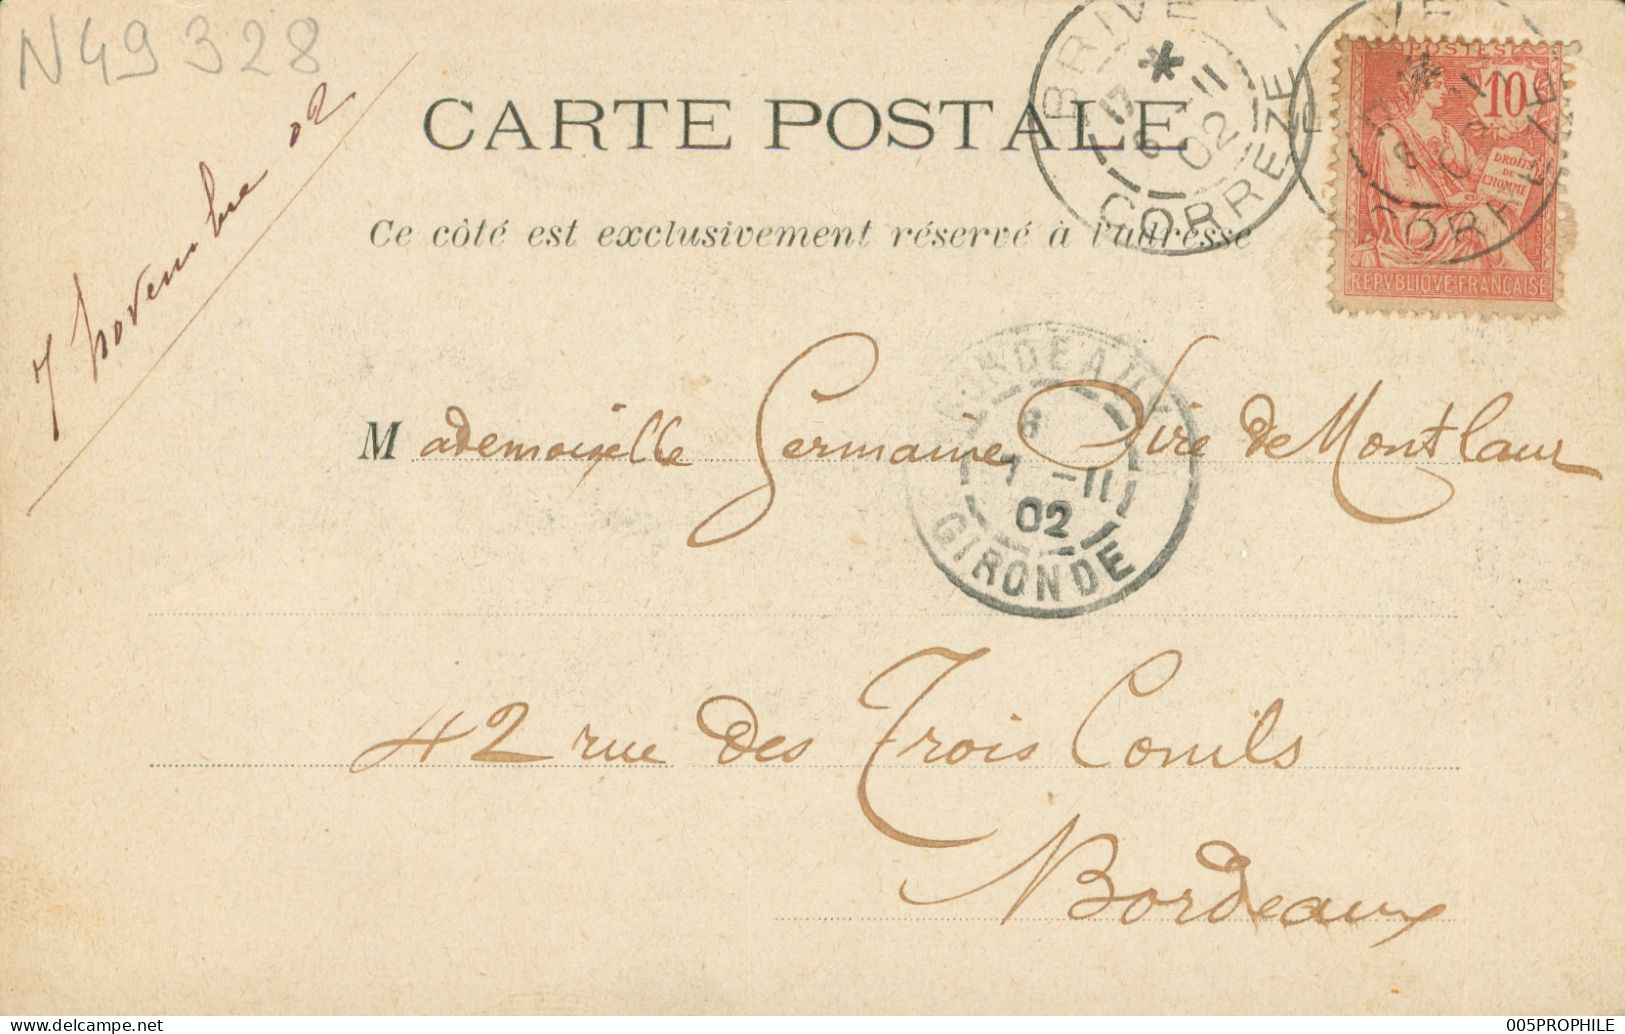 N49328
7 novembre 02
CARTE POSTALE
Ce côté est exclusivement réservé à l'adresse
BRIVE
17 *
6 -11
02
CORREZE
POSTES
10
DROITS
DE
L'HOMME
REPVBLIQVE FRANÇAISE
BORDEAUX
8
7 -11
02
GIRONDE
Mademoiselle Germaine Vire de Montlaur
42 rue des Trois Conils
Bordeaux
005PROPHILE